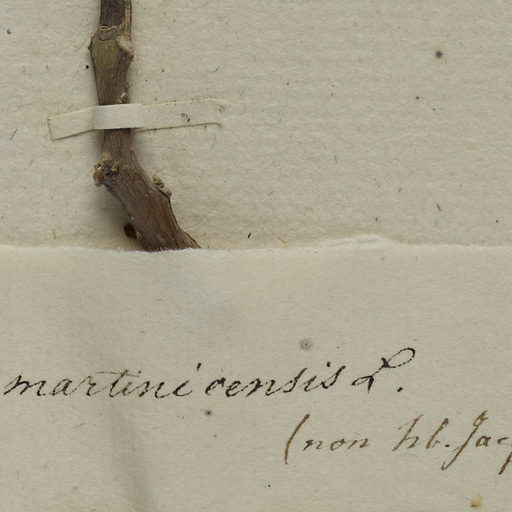 martinicensis L.
(non hb. Jacq